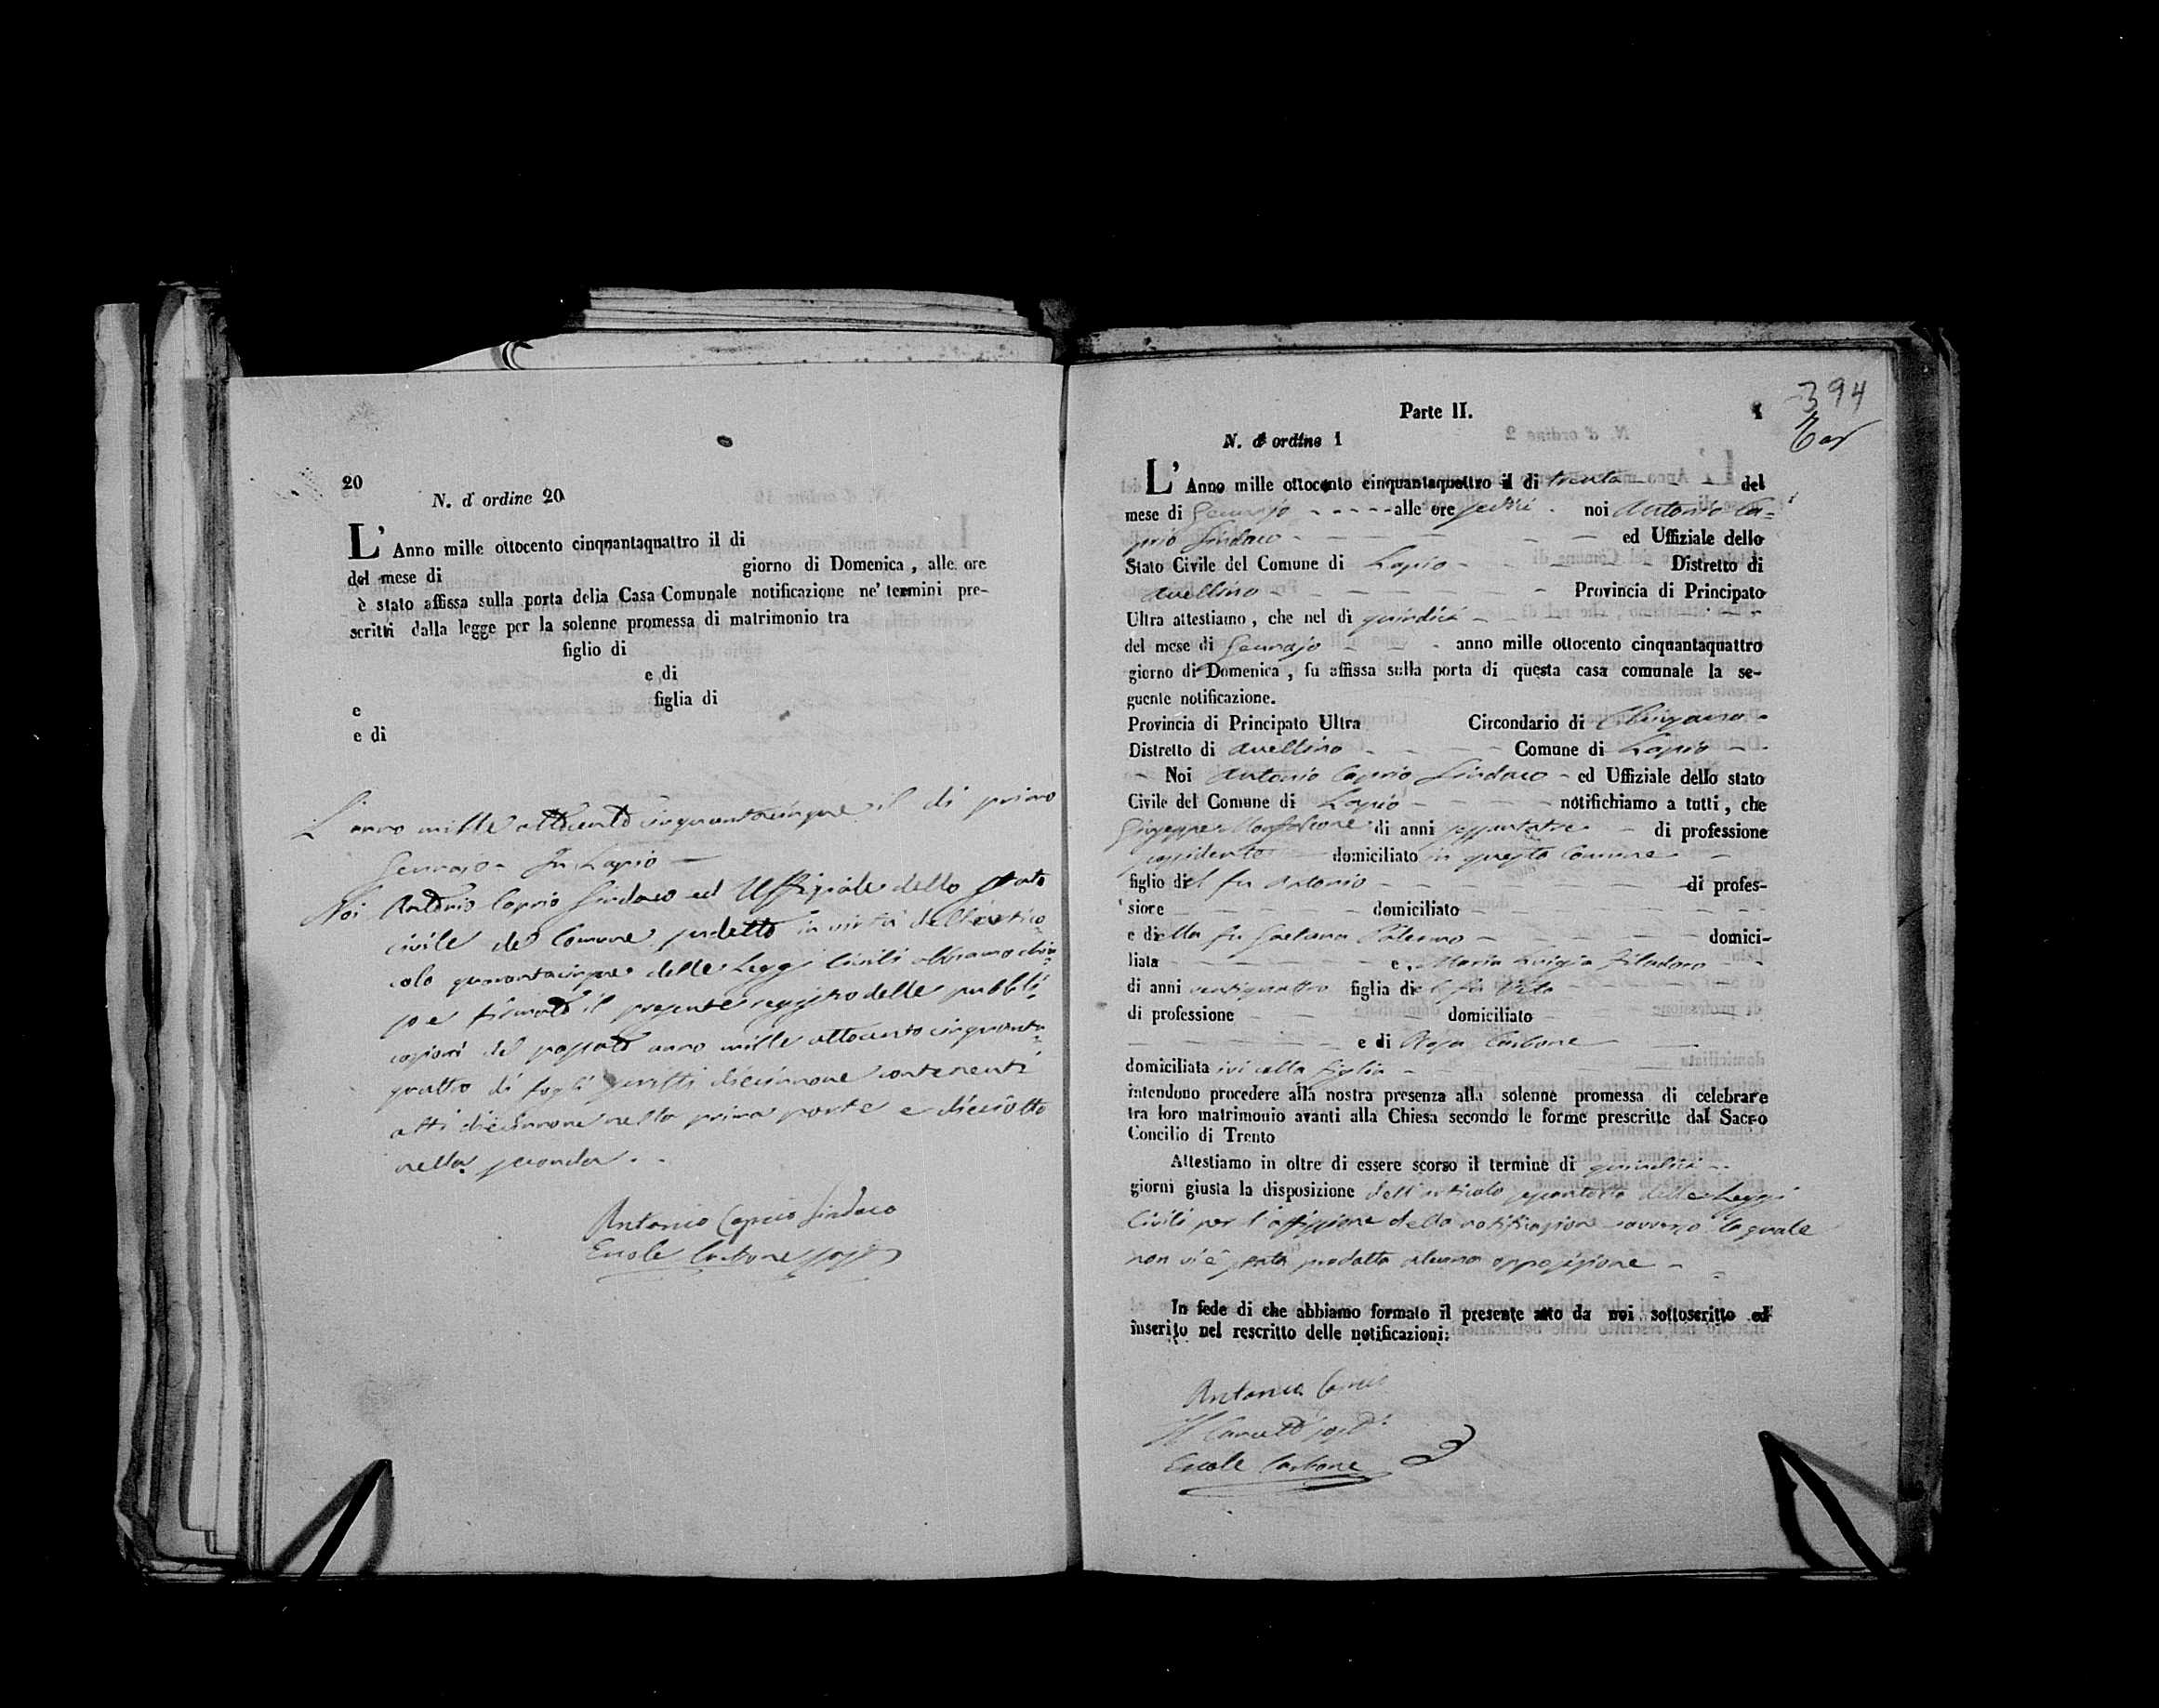 20
N. d' ordine 20
L' Anno mille ottocento cinquantaquattro il di
del mese di giorno di Domenica, alle ore
è stato affissa sulla porta della Casa Comunale notificazione ne' termini pre-
scritti dalla legge per la solenne promessa di matrimonio tra
figlio di
e di
e figlia di
e di
L'anno mille ottocento cinquantacinque il di primo
Gennajo - In Lapio -
Noi Antonio Caprio Sindaco ed Uffiziale dello Stato
civile del Comune sudetto in virtù dell'arti-
colo quarantacinque delle Leggi Civili abbiamo chiu-
so e firmato il presente registro delle pubbli-
cazioni del passato anno mille ottocento cinquanta-
quattro di fogli scritti diecinnove contenenti
atti diecinnove nella prima parte e dieciotto
nella seconda.
Antonio Caprio Sindaco
Ercole Carbone
394
Parte II.
1
N. d' ordine 1
L' Anno mille ottocento cinquantaquattro il di trenta del
mese di Gennajo alle ore sedici noi Antonio Ca-
prio Sindaco ed Uffiziale dello
Stato Civile del Comune di Lapio Distretto di
Avellino Provincia di Principato
Ultra attestiamo, che nel di quindici
del mese di Gennajo anno mille ottocento cinquantaquattro
giorno di Domenica, fu affissa sulla porta di questa casa comunale la se-
guente notificazione.
Provincia di Principato Ultra Circondario di Chiusano
Distretto di Avellino Comune di Lapio
Noi Antonio Caprio Sindaco ed Uffiziale dello stato
Civile del Comune di Lapio notifichiamo a tutti, che
Giuseppe Monfalcone di anni di professione
possidente domiciliato in questo Comune
figlio del fu Antonio di profes-
sione domiciliato
e della fu Gaetana Palermo domici-
liata e Maria Luigia Filadoro
di anni ventiquattro figlia del fu Vito
di professione domiciliato
e di Rosa Carbone
domiciliata ivi colla figlia
intendono procedere alla nostra presenza alla solenne promessa di celebrare
tra loro matrimonio avanti alla Chiesa secondo le forme prescritte dal Sacro
Concilio di Trento
Attestiamo in oltre di essere scorso il termine di quindici
giorni giusta la disposizione dell'articolo delle Leggi
Civili per l'affissione della notificazione avverso la quale
non vi è stata prodotta alcuna opposizione
In fede di che abbiamo formato il presente atto da noi sottoscritto ed
inserito nel rescritto delle notificazioni:
Antonio Caprio
Ercole Carbone